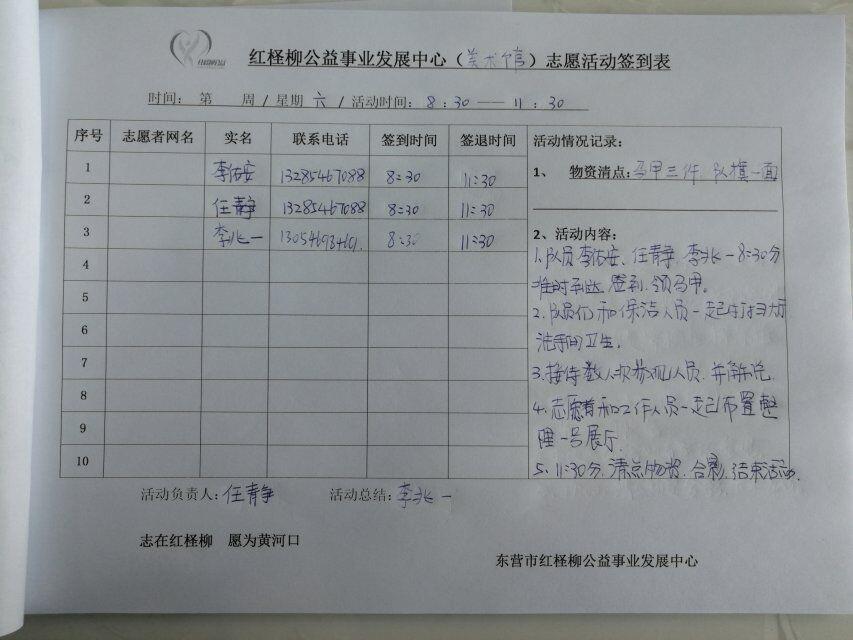 红柽柳公益事业发展中心（美术馆）志愿活动签到表
时间： 第 周 / 星期 六 / 活动时间： 8：30 —— 11：30
序号 志愿者网名 实名 联系电话 签到时间 签退时间
1 李佑安 13285467088 8：30 11：30
2 任静 13285467088 8：30 11：30
3 李兆一 8：30 11：30
4
5
6
7
8
9
10
活动情况记录：
1、 物资清点：马甲三件 队旗一面
2、活动内容：
1、队员李佑安、任静、李兆一8：30分
准时到达，签到，领马甲。
2、队员们和保洁人员一起打扫大厅
洗手间卫生。
3、接待数人次参观人员，并解说。
4、志愿者和工作人员一起布置整
理一号展厅。
5、11：30分，清点物资，合影，结束活动。
活动负责人：任静 活动总结：李兆一
志在红柽柳 愿为黄河口
东营市红柽柳公益事业发展中心